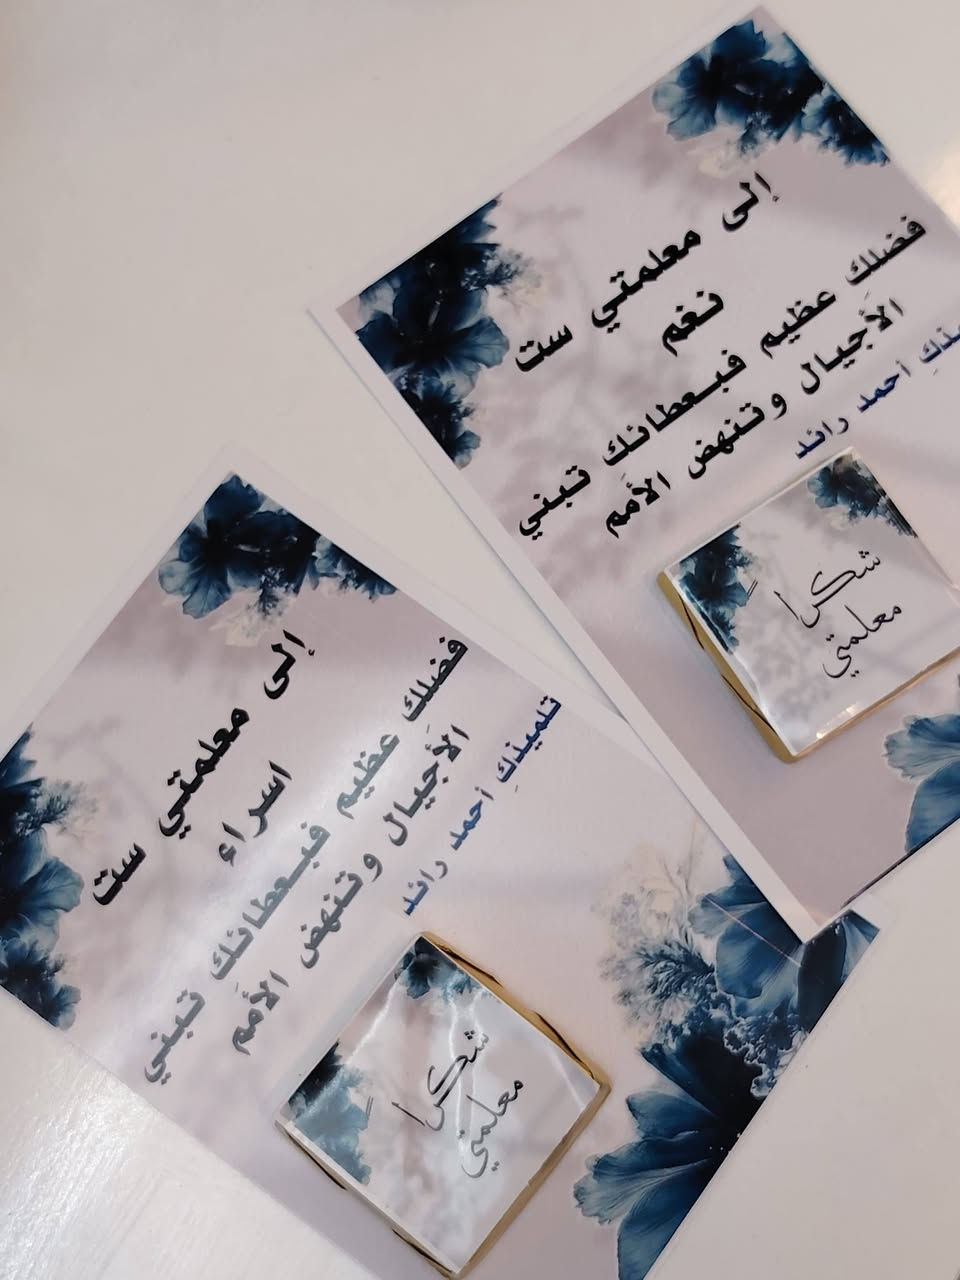 إلى معلمتي ست
نغم
فضلكِ عظيم فبعطائك تبني
الأجيال وتنهض الأمم
أحمد رائد
شكراً
معلمتي
إلى معلمتي ست
اسراء
فضلكِ عظيم فبعطائك تبني
الأجيال وتنهض الأمم
تلميذكِ أحمد رائد
شكراً
معلمتي